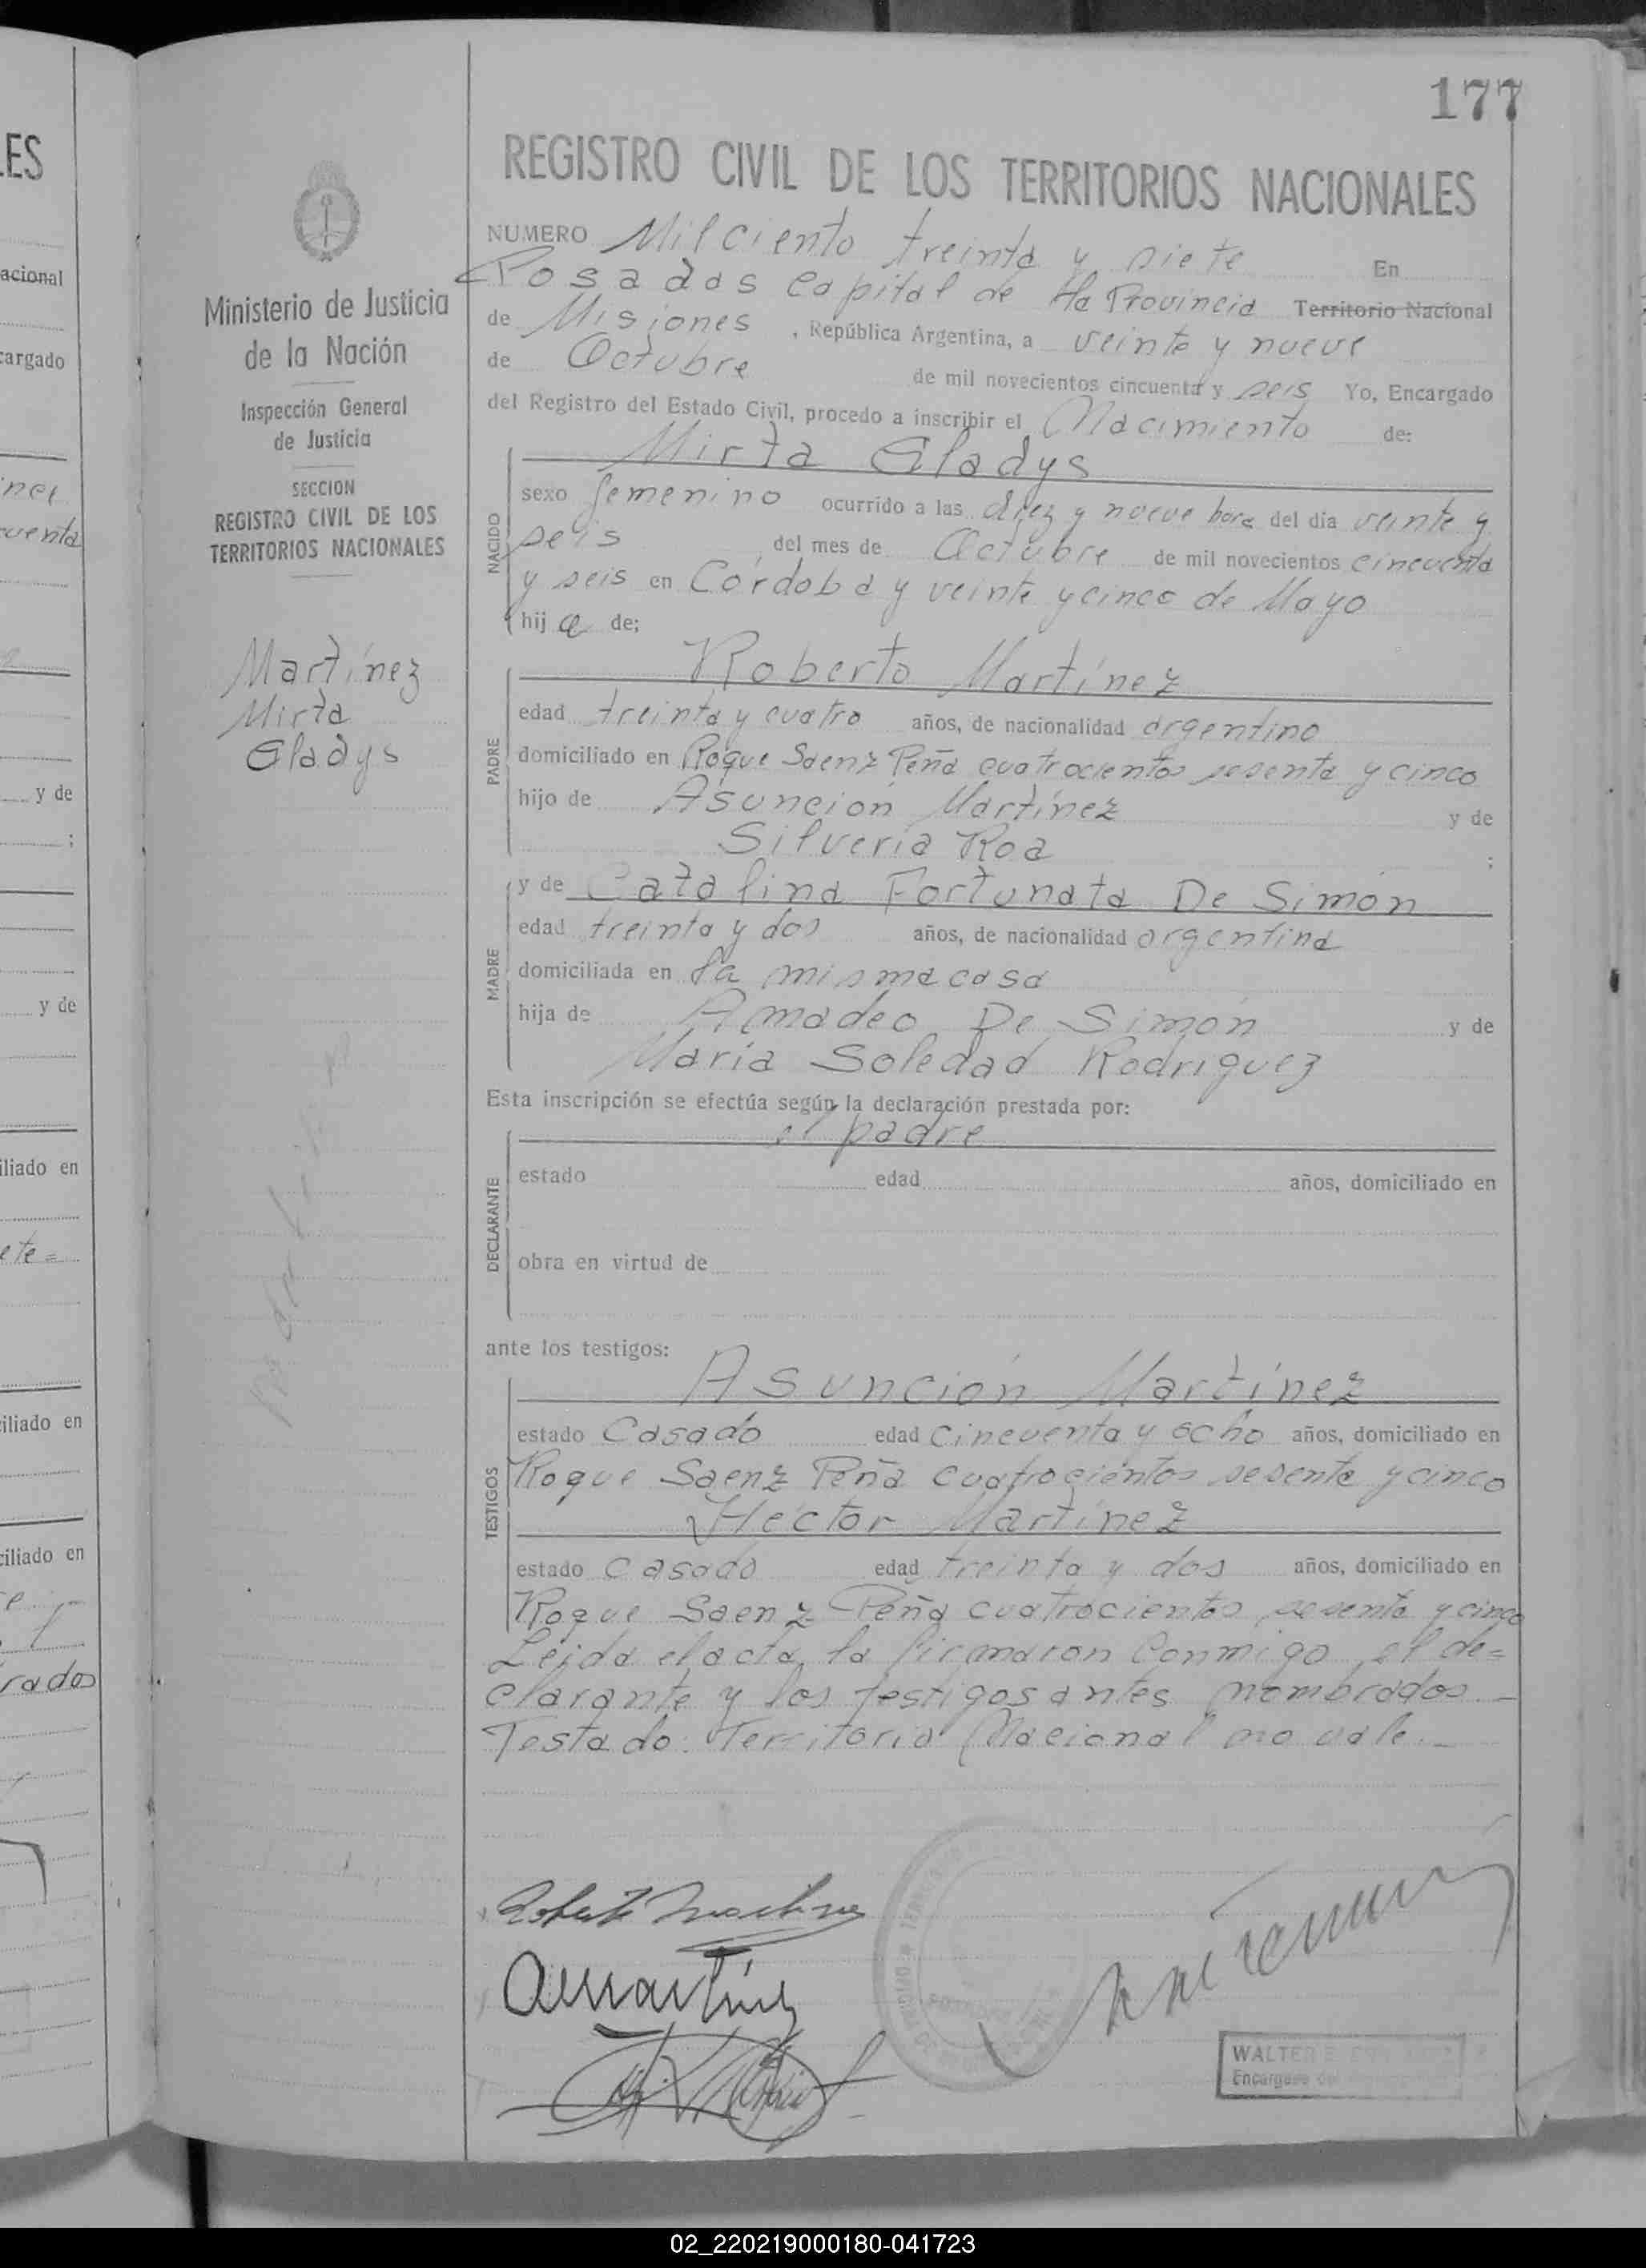 177
REGISTRO CIVIL DE LOS TERRITORIOS NACIONALES
NUMERO Mil ciento treinta y siete En
Posadas Capital de la Provincia Territorio Nacional
de Misiones, República Argentina, a veinte y nueve
de Octubre de mil novecientos cincuenta y seis Yo, Encargado
del Registro del Estado Civil, procedo a inscribir el Nacimiento de:
Mirta Gladys
NACIDO
sexo femenino ocurrido a las diez y nueve hora del día veinte y
seis del mes de Octubre de mil novecientos cincuenta
y seis en Córdoba y veinte y cinco de Mayo
hij a de;
Roberto Martínez
PADRE
edad treinta y cuatro años, de nacionalidad argentino
domiciliado en Roque Saenz Peña cuatrocientos sesenta y cinco
hijo de Asunción Martínez y de
Silveria Roa ;
y de Catalina Fortunata De Simón
MADRE
edad treinta y dos años, de nacionalidad argentina
domiciliada en la misma casa
hija de Amadeo De Simón y de
María Soledad Rodríguez
Esta inscripción se efectúa según la declaración prestada por:
el padre
DECLARANTE
estado edad años, domiciliado en
obra en virtud de
ante los testigos:
Asunción Martínez
TESTIGOS
estado Casado edad cincuenta y ocho años, domiciliado en
Roque Saenz Peña cuatrocientos sesenta y cinco
Héctor Martínez
estado casado edad treinta y dos años, domiciliado en
Roque Saenz Peña cuatrocientos sesenta y cinco
Leída el acta, la firmaron conmigo el de=
clarante y los testigos antes nombrados _
Testado: Territorio Nacional no vale._
Roberto Martínez
WALTER
Encargado
Ministerio de Justicia
de la Nación
Inspección General
de Justicia
SECCION
REGISTRO CIVIL DE LOS
TERRITORIOS NACIONALES
Martínez
Mirta
Gladys
ES
acional
cargado
uenta
y de
;
y de
iliado en
ete=
iliado en
ciliado en
rados
02_220219000180-041723